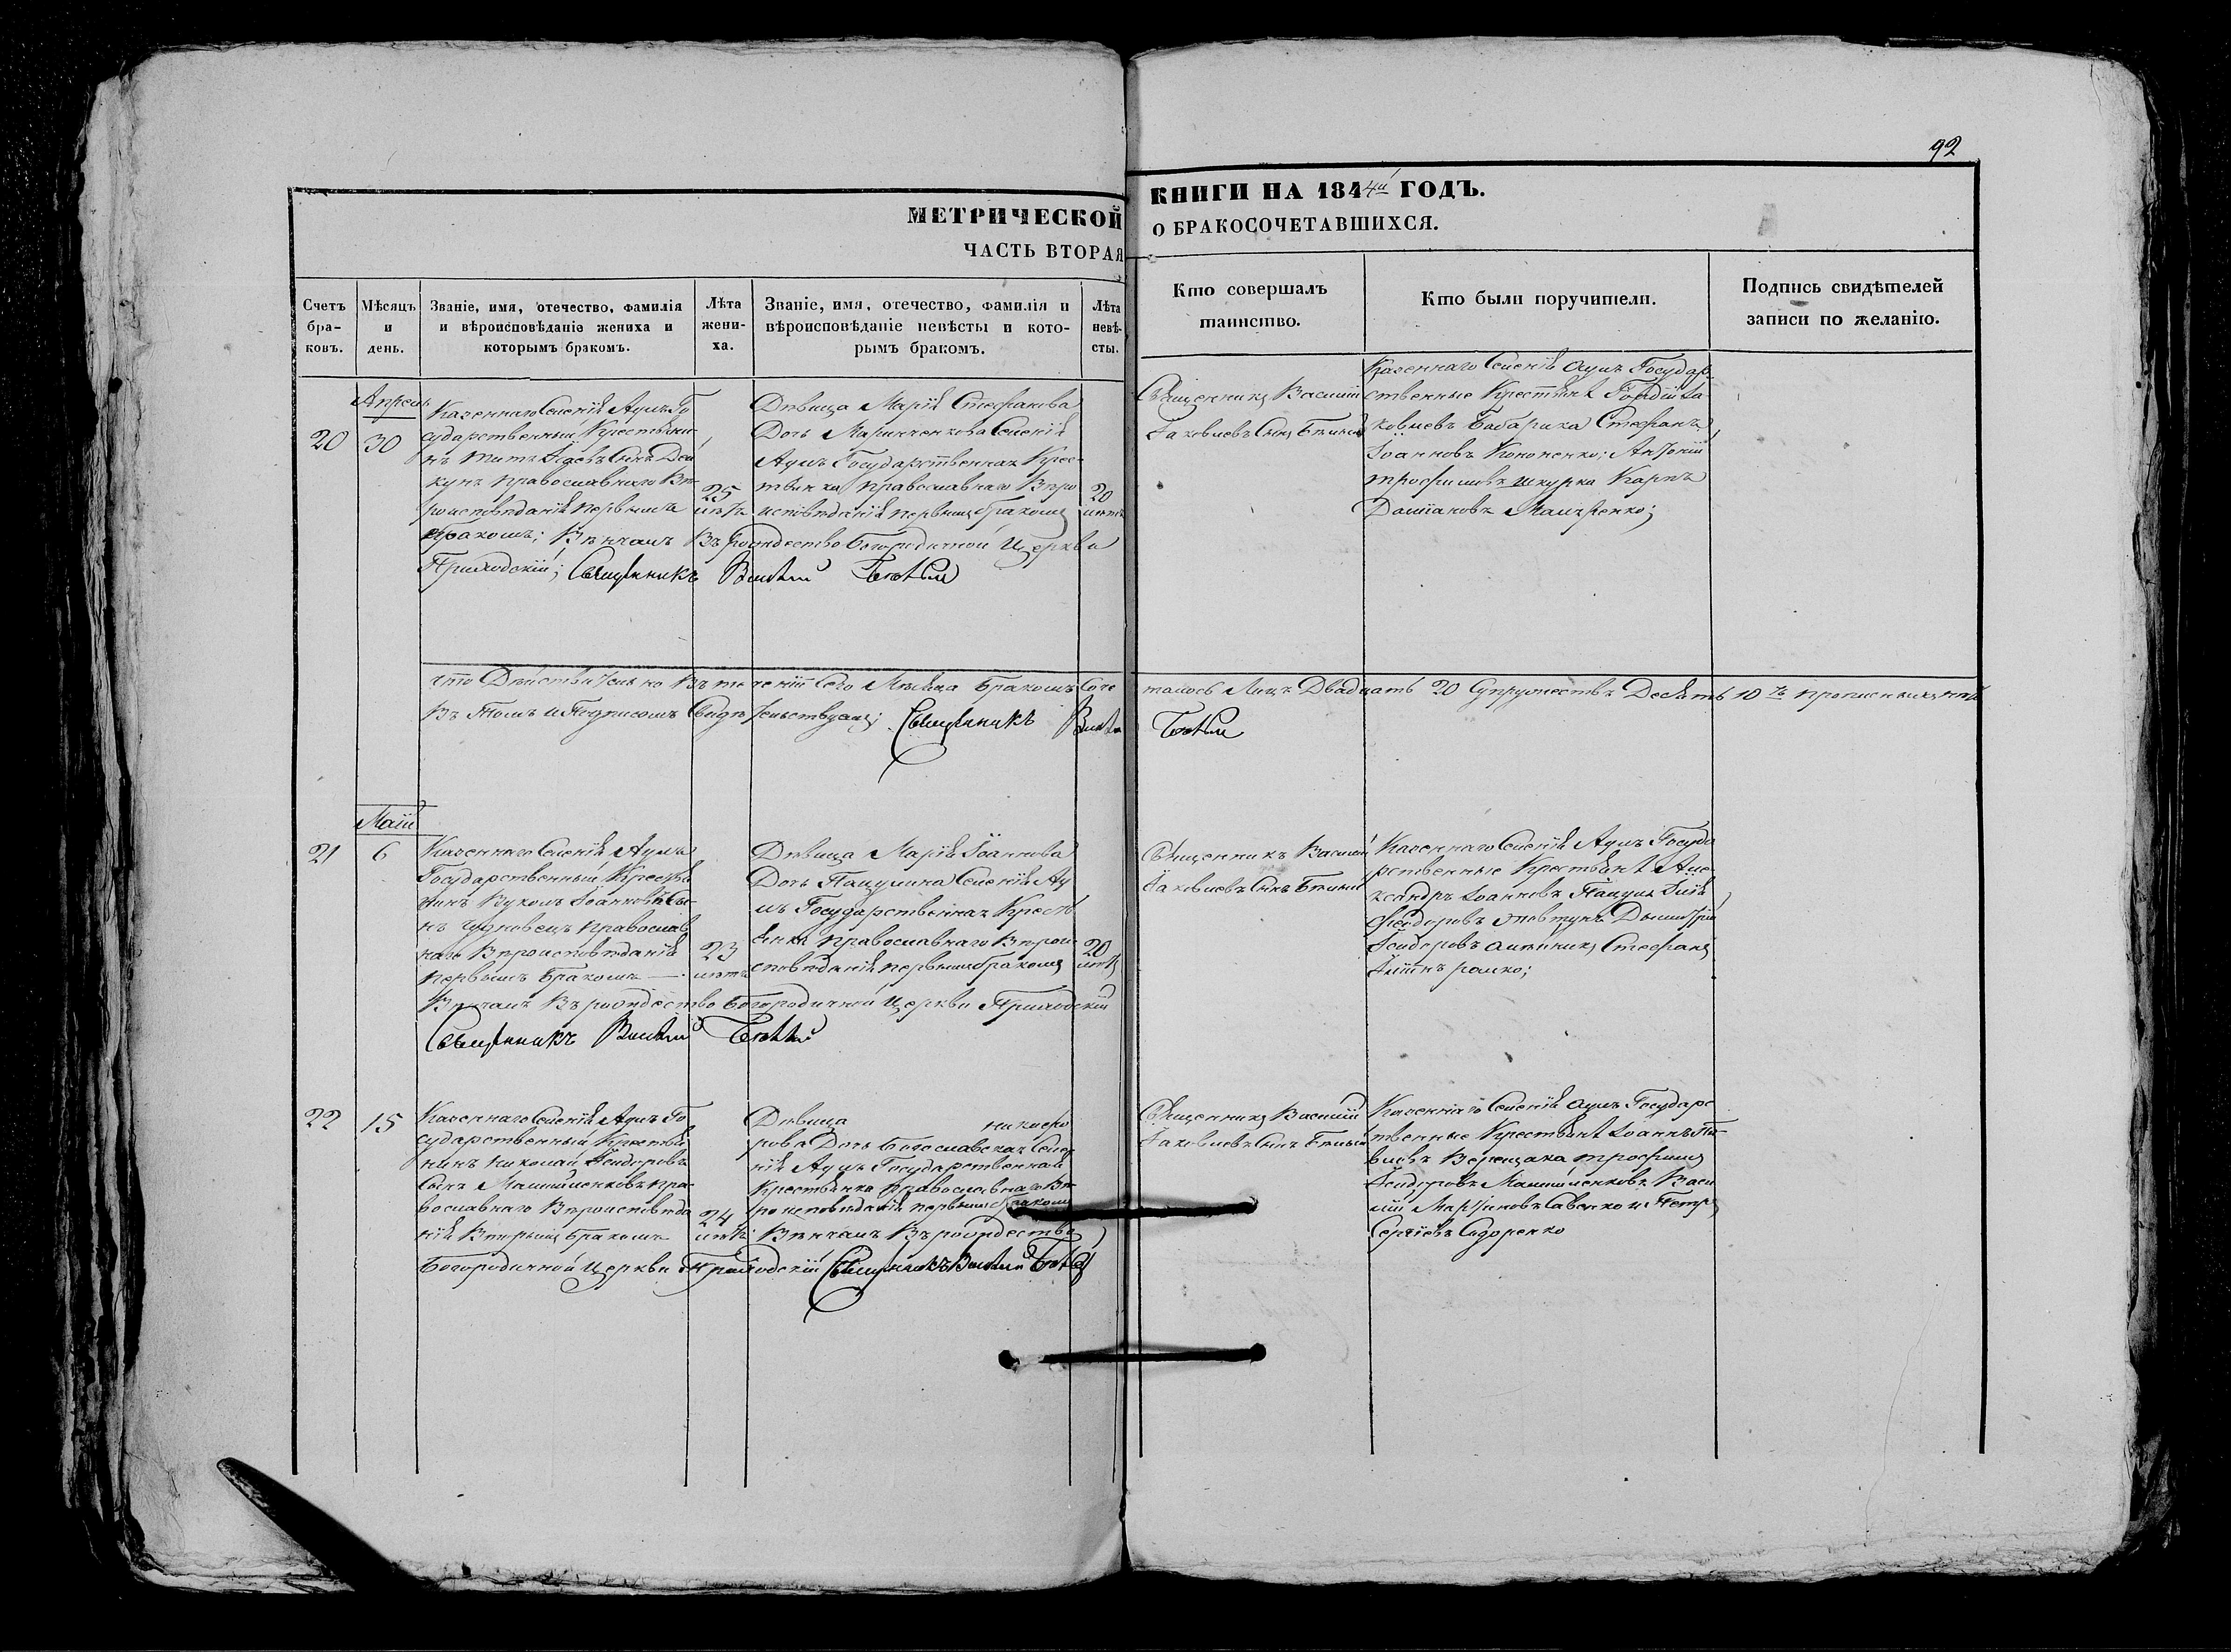 92
МЕТРИЧЕСКОЙ
ЧАСТЬ ВТОРАЯ
КНИГИ НА 1844й ГОДЪ.
О БРАКОСОЧЕТАВШИХСЯ.
Счетъ бра-
ковъ.
Мѣсяцъ
и
день.
Званіе, имя, отечество, фамилія
и вѣроисповѣданіе жениха и
которымъ бракомъ.
Лѣта
жени-
ха.
Званіе, имя, отечество, фамилія и
вѣроисповѣданіе невѣсты и кото-
рымъ бракомъ.
Лѣта
невѣ-
сты.
Кто совершалъ
таинство.
Кто были поручители.
Подпись свидѣтелей
записи по желанію.
Апрель
20
30
Казеннаго Селенія Аулъ Го
сударственный Крестьяни
нъ Титъ сынъ
кунъ православнаго Вѣ
роисповѣданія первымъ
бракомъ; Вѣнчалъ Въ рождество Богородичной Церкви
Приходскій; Священникъ Василій
25
лѣтъ
Дѣвица Марія Стефанова
Дочь Маринченкова Селенія
Аулъ Государственная Крес
тьянка православнаго Вѣро
исповѣданія первымъ бракомъ
20
лѣтъ
Священникъ Василій
Іаковлевъ Сынъ
Казеннаго Селенія Аулъ Государ-
ственные Крестьяне Гордій Іа
ковлевъ Бабарика Стефанъ
Іоанновъ Кононенко; Антоній
трофимовъ шкурка Карпъ
Даміановъ
что Действительно Въ теченіи сего Мѣсяца Бракомъ Соче
талось Лицъ Двадцать 20 Супружествъ Десять 10ть
Въ Томъ и Подписомъ Свидѣтельствуемъ; Священникъ Василій
Маій
21
6
Казеннаго Селенія Аулъ
Государственный Крестья
нинъ Вуколъ Іоанновъ Сы
нъ чудновецъ православ
наго Вѣроисповѣданія
первымъ Бракомъ —
Вѣнчалъ Въ рождество Богородичной Церкви Приходскій
Священникъ Василій
23
лѣтъ
Дѣвица Марія Іоаннова
Дочь Панулина Селенія Ау
лъ Государственная Кресть
янка православнаго Вѣрои
сповѣданія первымъ бракомъ
20
лѣтъ
Священникъ Василій
Іаковлевъ Сынъ
Казеннаго Селенія Аулъ Госуда
рственные Крестьяне Але
ксандръ Іоанновъ Панулъ Илія
Феодоровъ Дмитрій
Феодоровъ Стефанъ
22
15
Казеннаго Селенія Аулъ Го
сударственный Крестья
нинъ Николай Феодоровъ
Сынъ пра
вославнаго Вѣроисповѣда
нія Вторымъ бракомъ
Богородичной Церкви Приходскій Священникъ Василій
24
лѣтъ
Дѣвица никифо
рова Дочь Богославская Селе
нія Аулъ Государственная
Крестьянка православнаго Вѣ
роисповѣданія первымъ бракомъ
Вѣнчалъ Въ рождество
Священникъ Василій
Іаковлевъ Сынъ
Казеннаго Селенія Аулъ Государс
твенные Крестьяне Іоаннъ Па
вловъ Верещака трофимъ
Феодоровъ Васи
лій Мартиновъ Савенко и Петръ
Сергіевъ Сидоренко